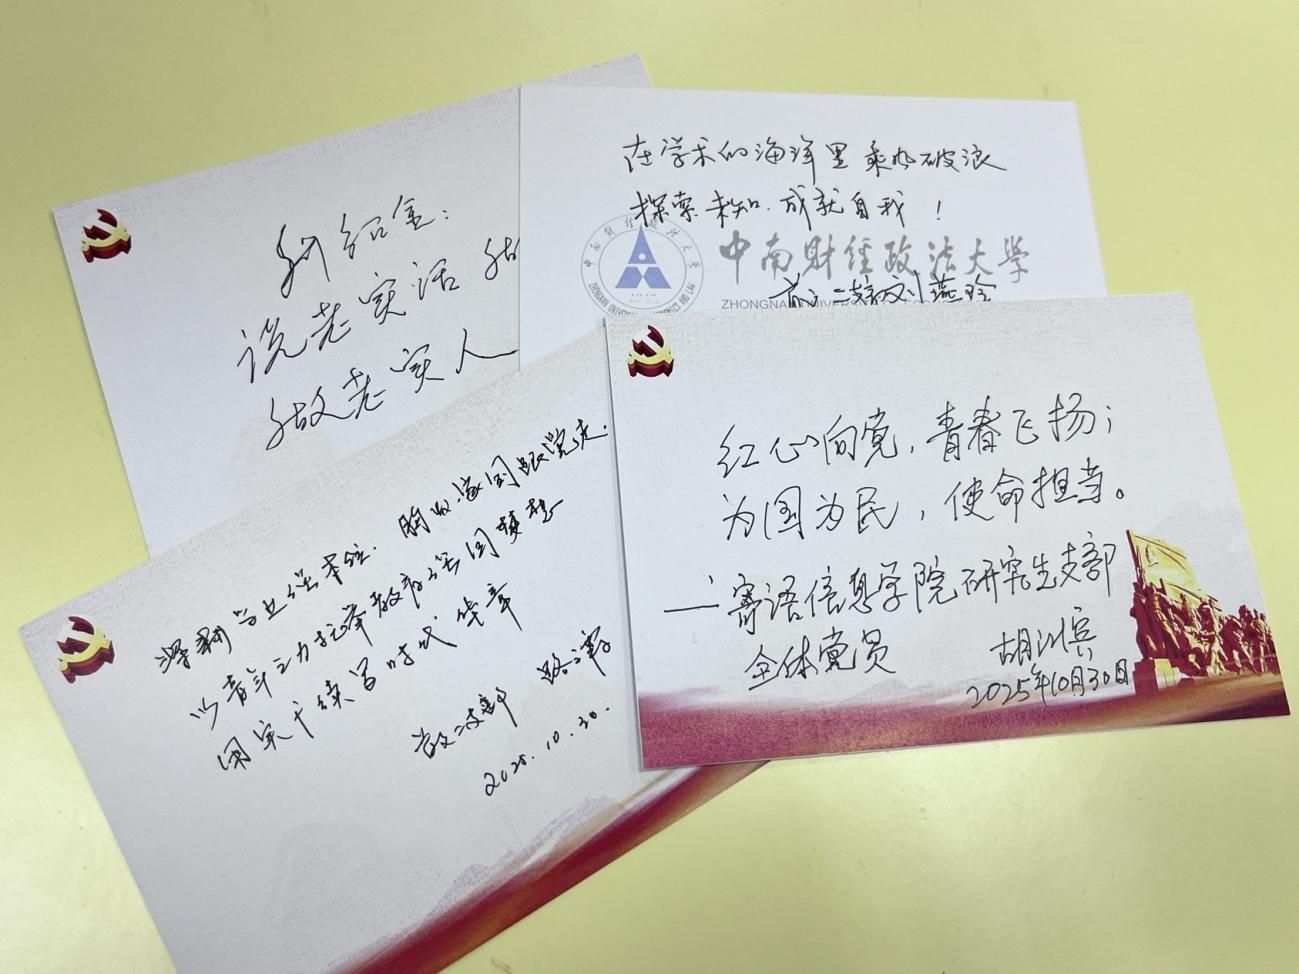 说老实话 做
做老实人
在学术的海洋里乘风破浪
探索未知、成就自我！
中南财经政法大学
中南财经政法大学
ZHONGNAN UNIVER
红心向党，青春飞扬；
为国为民，使命担当。
——寄语信息学院研究生支部
全体党员
胡川宾
2025年10月30日
深耕学业强本领，胸怀家国跟党走.
以青年之力托举教育强国梦想
用实干续写时代华章
2025.10.30.